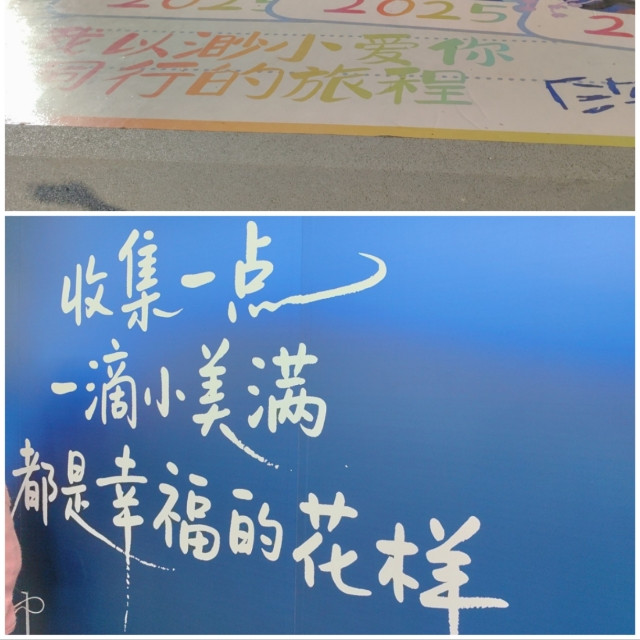 2025 2025 2
我以渺小爱你
同行的旅程
收集一点
一滴小美满
都是幸福的花样